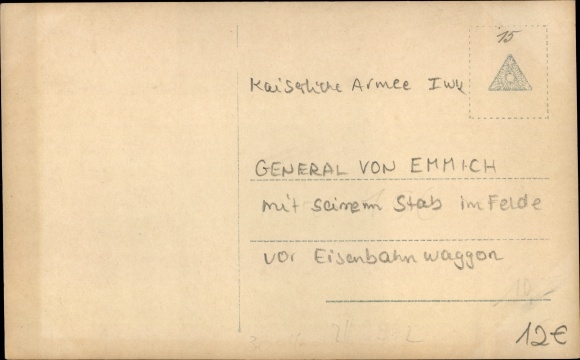 15
Kaiserliche Armee I WK
GENERAL VON EMMICH
mit seinem Stab im Felde
vor Eisenbahnwaggon
10
12€